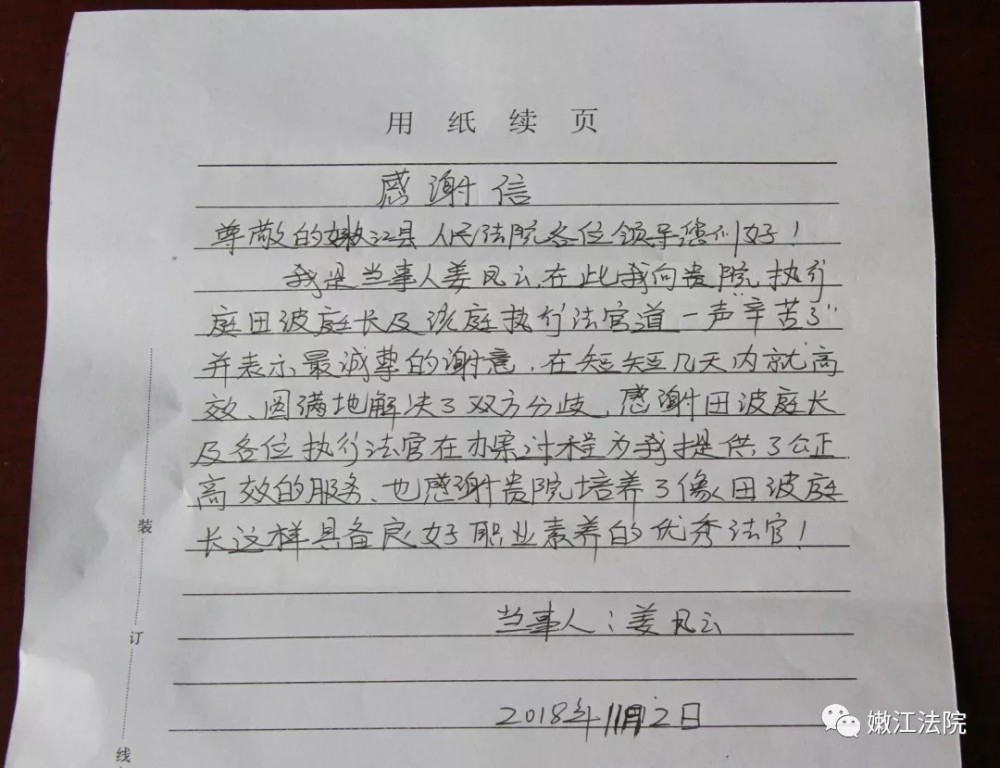 用纸续页
感谢信
尊敬的嫩江县人民法院各位领导您们好！
我是当事人姜凤云，在此我向贵院执行
庭田波庭长及该庭执行法官道一声"辛苦了"
并表示最诚挚的谢意，在短短几天内就高
效、圆满地解决了双方分歧，感谢田波庭长
及各位执行法官在办案过程为我提供了公正
高效的服务、也感谢贵院培养了像田波庭
长这样具备良好职业素养的优秀法官！
当事人：姜凤云
2018年11月2日
装
订
线
嫩江法院